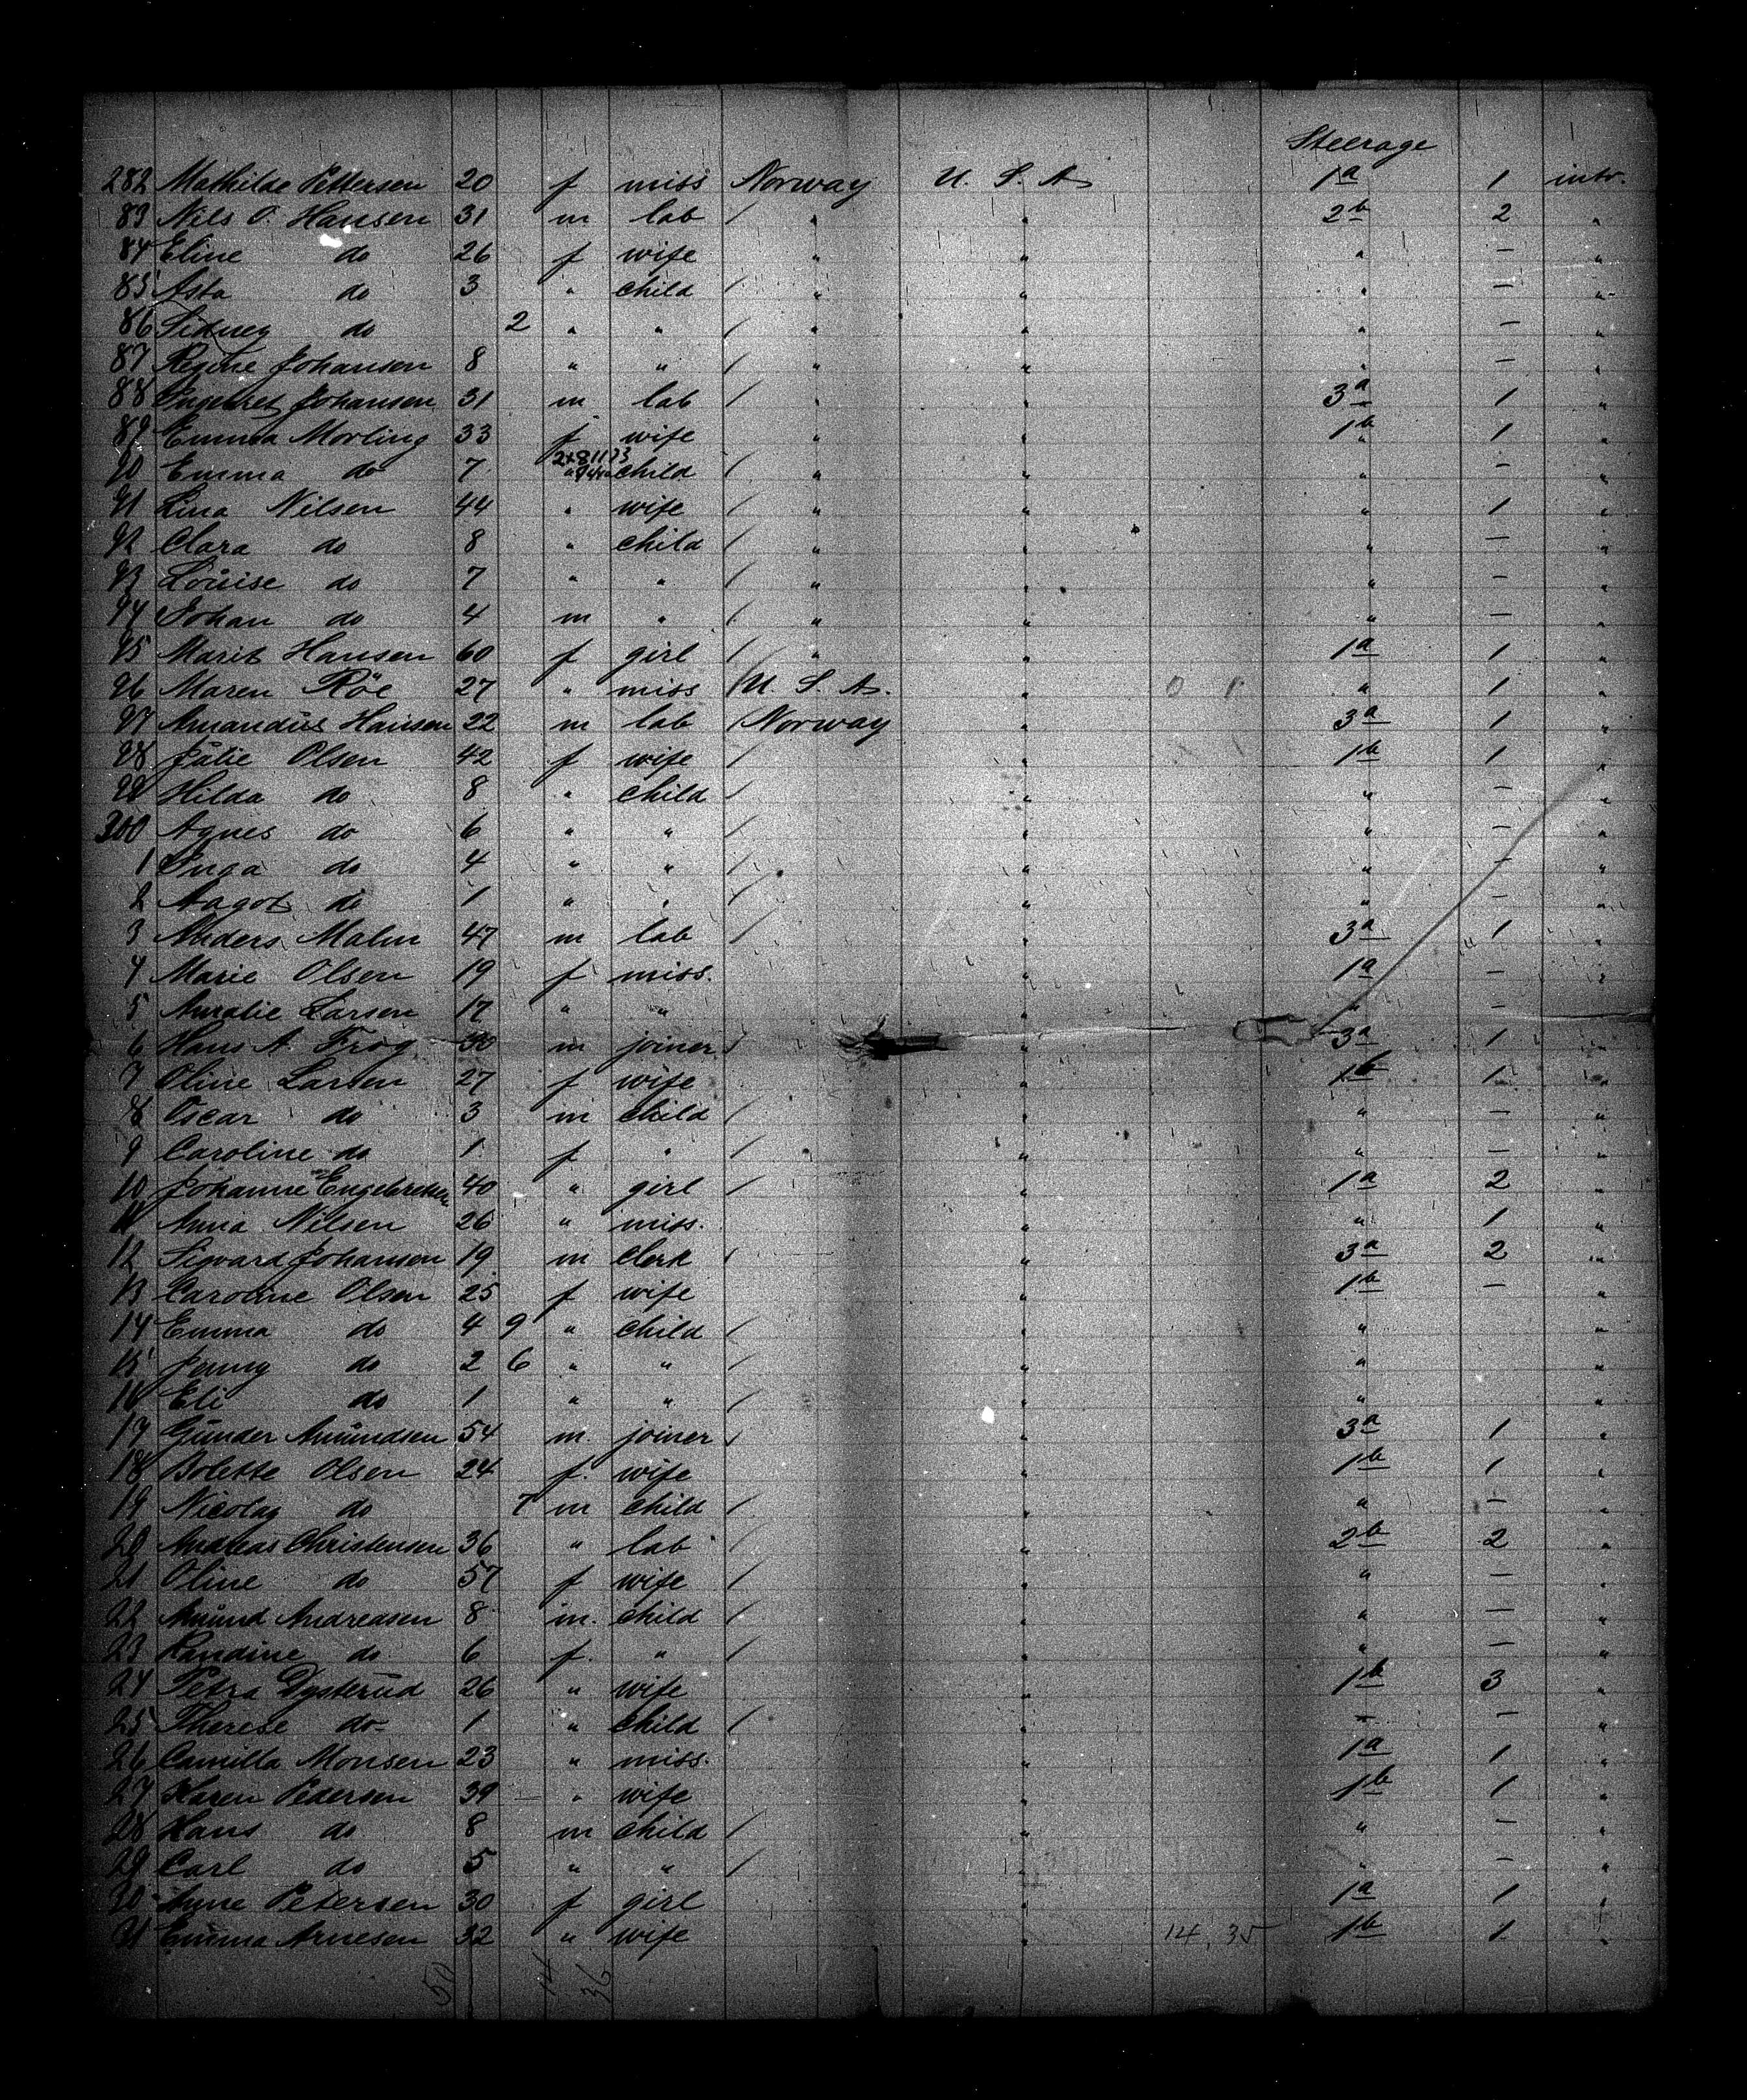 Steerage
282 Mathilde Pettersen 20 f miss Norway U. S. A 1a 1 intr.
83 Nils O. Hansen 31 m lab / " " 2b 2 "
84 Eline do 26 f wife " " " — "
85 Asta do 3 " child / " " " — "
86 do 2 " " / " " " — "
87 Regine Johansen 8 " " / " " " — "
88 Ingebret Johansen 31 m lab / " " 3a 1 "
89 Emma Morling 33 f wife " " 1b 1 "
2x81173
90 Emma do 7 " child / " " " — "
91 Lina Nilsen 44 " wife / " " " 1 "
92 Clara do 8 " child / " " " — "
93 Louise do 7 " " / " " " — "
94 Johan do 4 m " / " " " — "
95 Marit Hansen 60 f girl / " " 1a 1 "
96 Maren Röe 27 " miss / U. S. A. " 0 1 " 1 "
97 Amandus Hansen 22 m lab / Norway " 3a 1 "
98 Julie Olsen 42 f wife / " 1b 1 "
99 Hilda do 8 " child / " " — "
300 Agnes do 6 " " / " " — "
1 Inga do 4 " " / " " — "
2 Aagot do 1 " " / " " — "
3 Anders Malm 47 m lab / " 3a 1 "
4 Marie Olsen 19 f miss. " 1a — "
5 Amalie Larsen 17 " " " " — "
6 Hans A. Frog 30 m joiner / " 3a 1 "
7 Oline Larsen 27 f wife " 1b 1 "
8 Oscar do 3 m child / " " — "
9 Caroline do 1 f " / " " — "
10 Johanne Engebretsen 40 " girl / " 1a 2 "
11 Anna Nilsen 26 " miss. " " 1 "
12 Sigvard Johansen 19 m clerk / " 3a 2 "
13 Caroline Olsen 25 f wife " 1b — "
14 Emma do 4 9 " child / " " "
15 Jenny do 2 6 " " / " " "
16 Eli do 1 " " / " " "
17 Gunder Amundsen 54 m. joiner / " 3a 1 "
18 Bolette Olsen 24 f. wife " 1b 1 "
19 Nicolay do 7 m child / " " — "
20 Andreas Christensen 36 " lab / " 2b 2 "
21 Oline do 57 f wife / " " — "
22 Amund Andreasen 8 m. child / " " — "
23 Randine do 6 f. " / " " — "
24 Petra Dysterud 26 " wife " 1b 3 "
25 Therese do 1 " child / " — — "
26 Camilla Monsen 23 " miss. " 1a 1 "
27 Karen Pedersen 39 " wife " 1b 1 "
28 Hans do 8 m child / " " — "
29 Carl do 5 " " / " " — "
30 Petersen 30 f girl " 1a 1 "
31 Emma Arnesen 32 " wife " 14, 35 1b 1 "
50 14 36